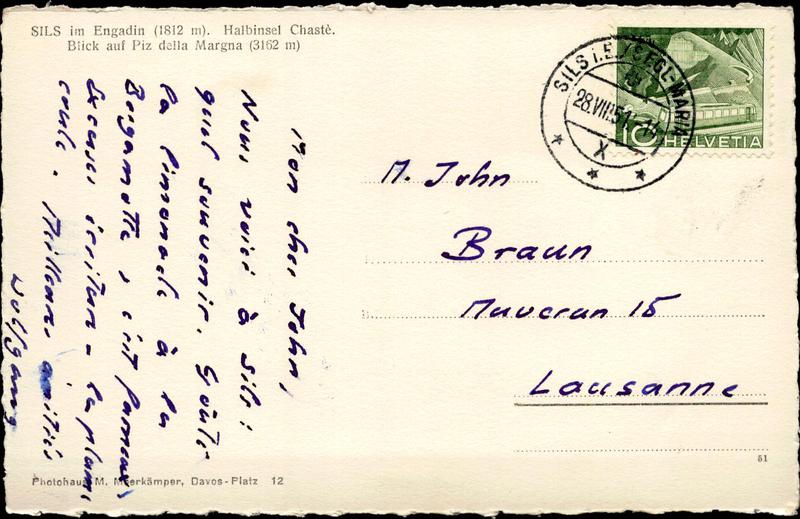 SILS im Engadin (1812 m). Halbinsel Chastè.
Blick auf Piz della Margna (3162 m)
Mon cher John,
Nous voici à Sils:
quel souvenir. Goûté
la limonade à la
Bergamotte, c'est fameux,
Excuses écriture - la plume
coule. Meilleures amitiés
Wolfgang
SILS i. E. / SEGL-MARIA
28.VII.51
X
10 HELVETIA
M. John
Braun
Mauveran 15
Lausanne
51
Photohaus M. Meerkämper, Davos-Platz 12